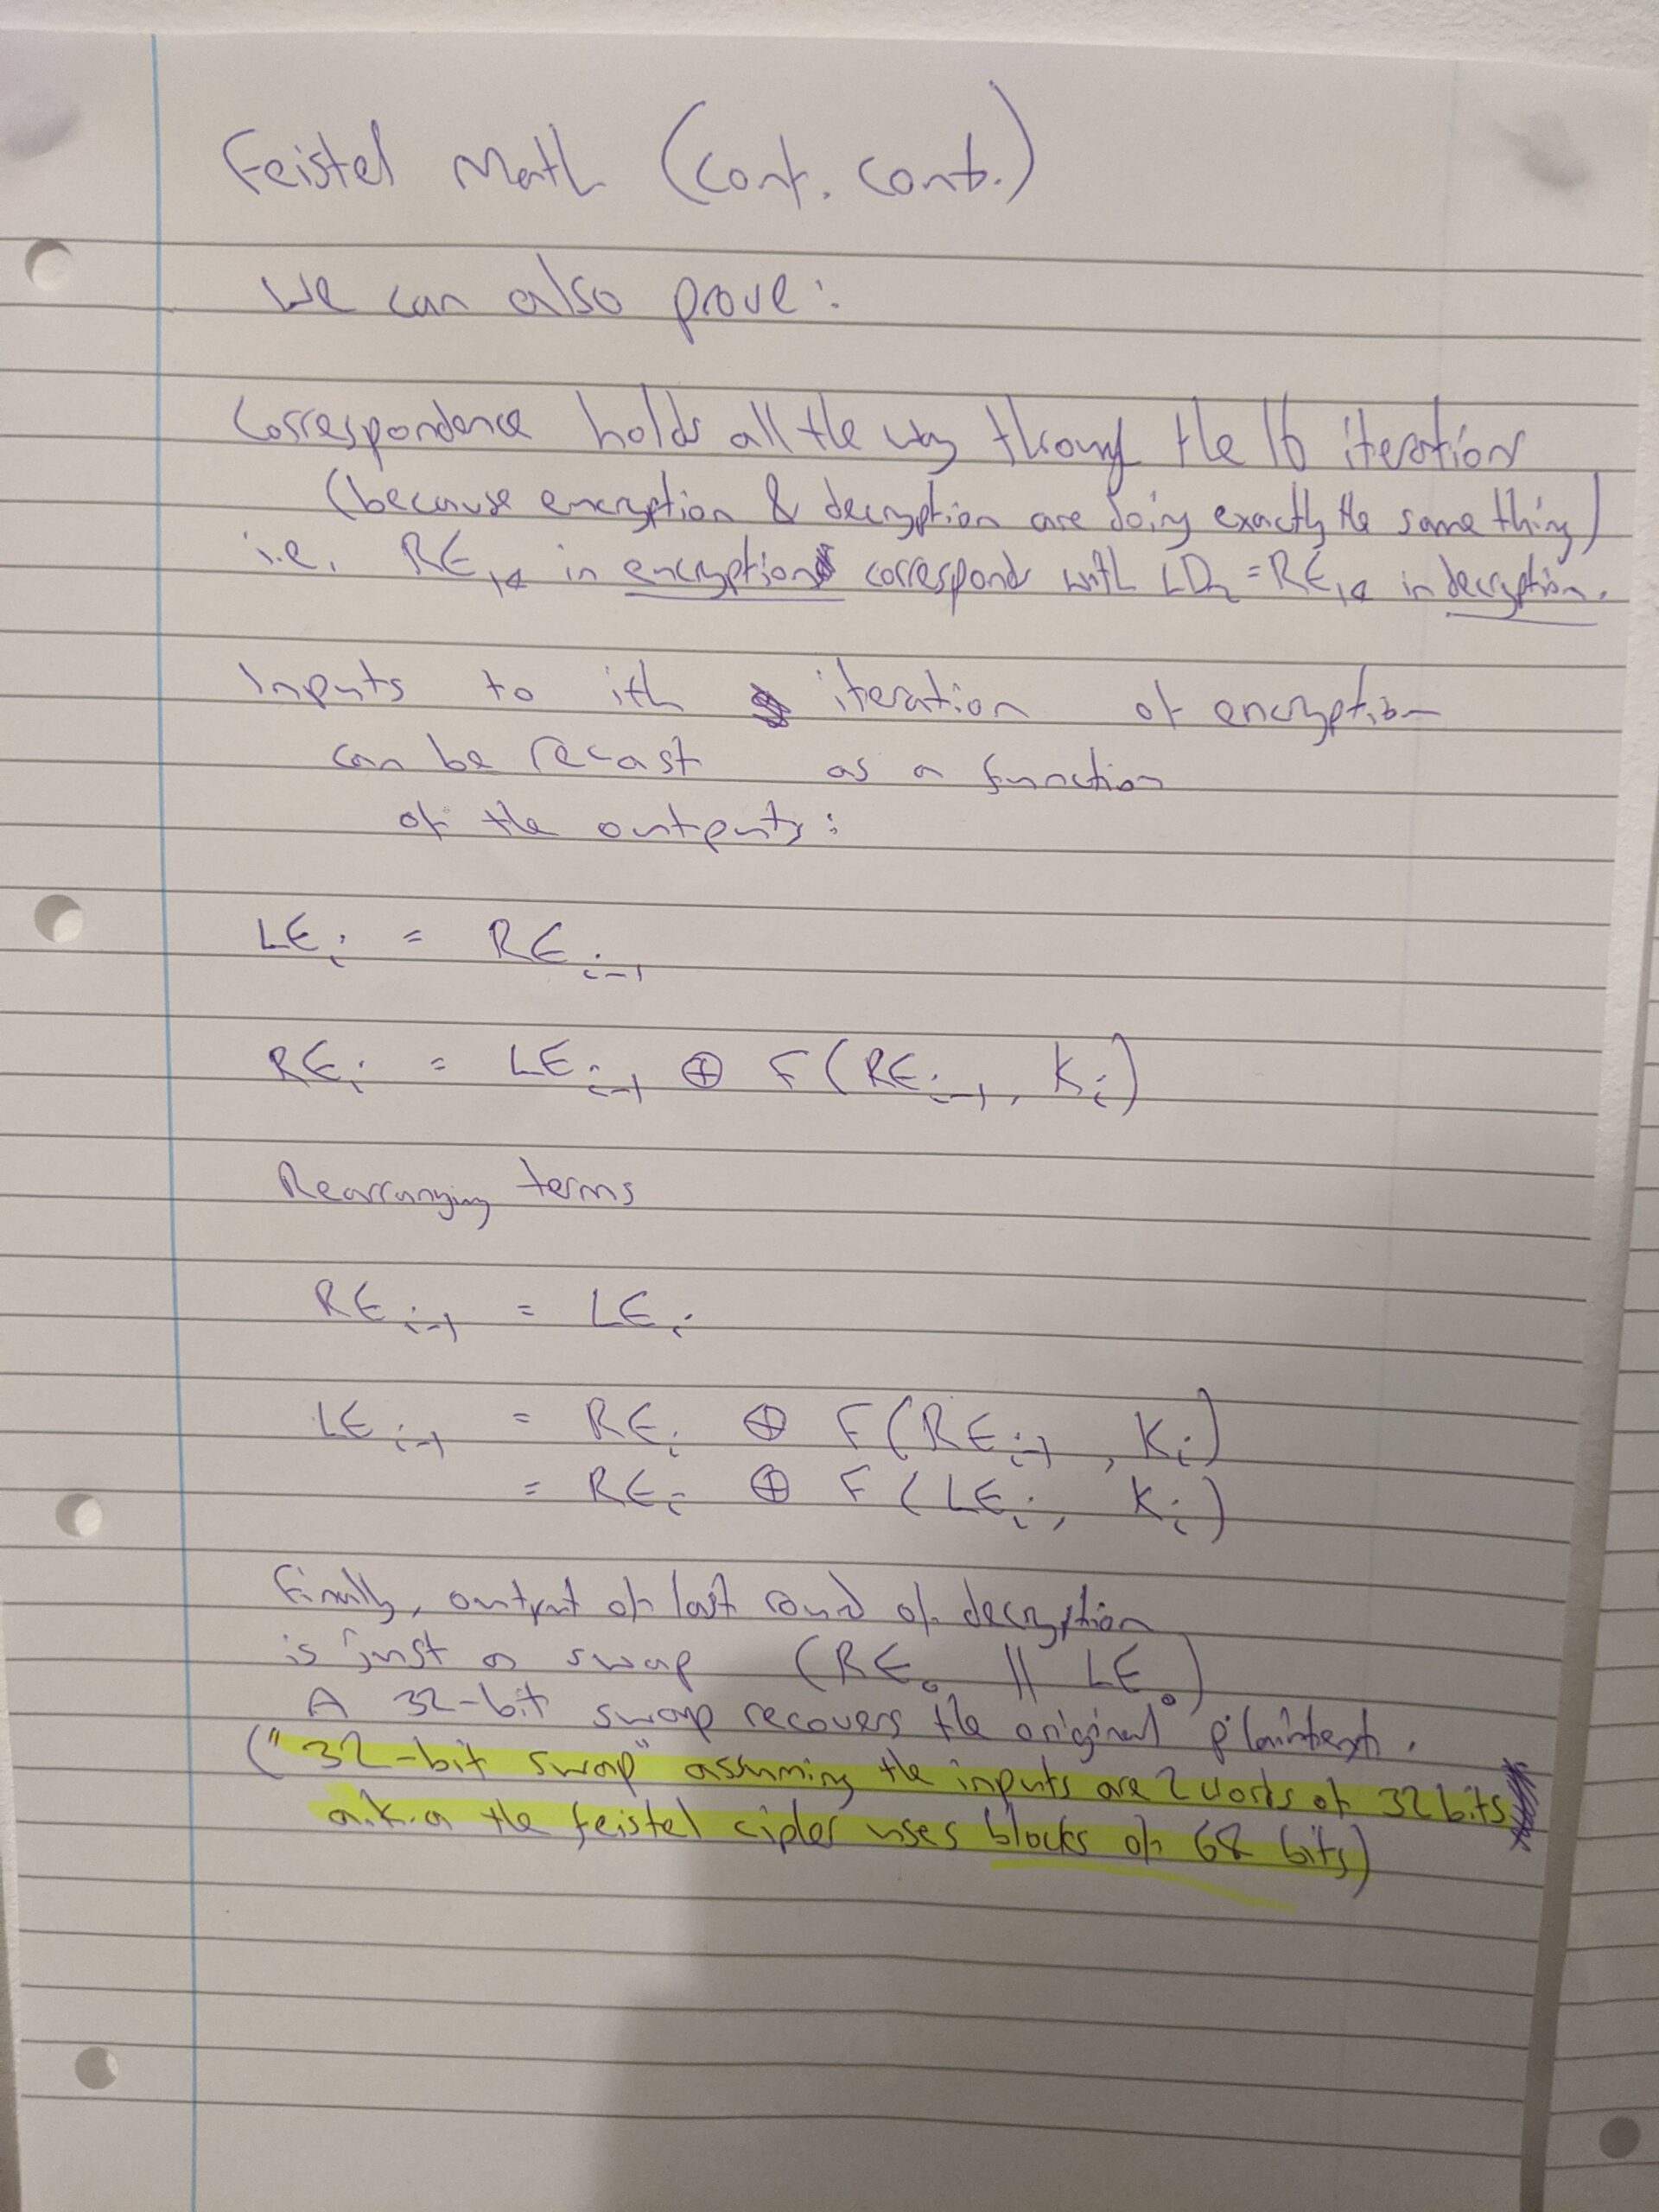 Feistel Math (cont. cont.)
We can also prove:
Correspondence holds all the way through the 16 iteration
(because encryption & decryption are doing exactly the same thing)
i.e. RE₁₄ in encryption correspond with LD₂ = RE₁₄ in decryption.
Inputs to ith iteration of encryption
can be recast as a function
of the outputs:
LEᵢ = REᵢ₋₁
REᵢ = LEᵢ₋₁ ⊕ F(REᵢ₋₁, Kᵢ)
Rearranging terms
REᵢ₋₁ = LEᵢ
LEᵢ₋₁ = REᵢ ⊕ F(REᵢ₋₁, Kᵢ)
= REᵢ ⊕ F(LEᵢ, Kᵢ)
Finally, output of last round of decryption
is just a swap (RE₀ || LE₀)
A 32-bit swap recovers the original plaintext.
("32-bit swap" assuming the inputs are 2 words of 32 bits
a.k.a the feistel cipher uses blocks of 64 bits)